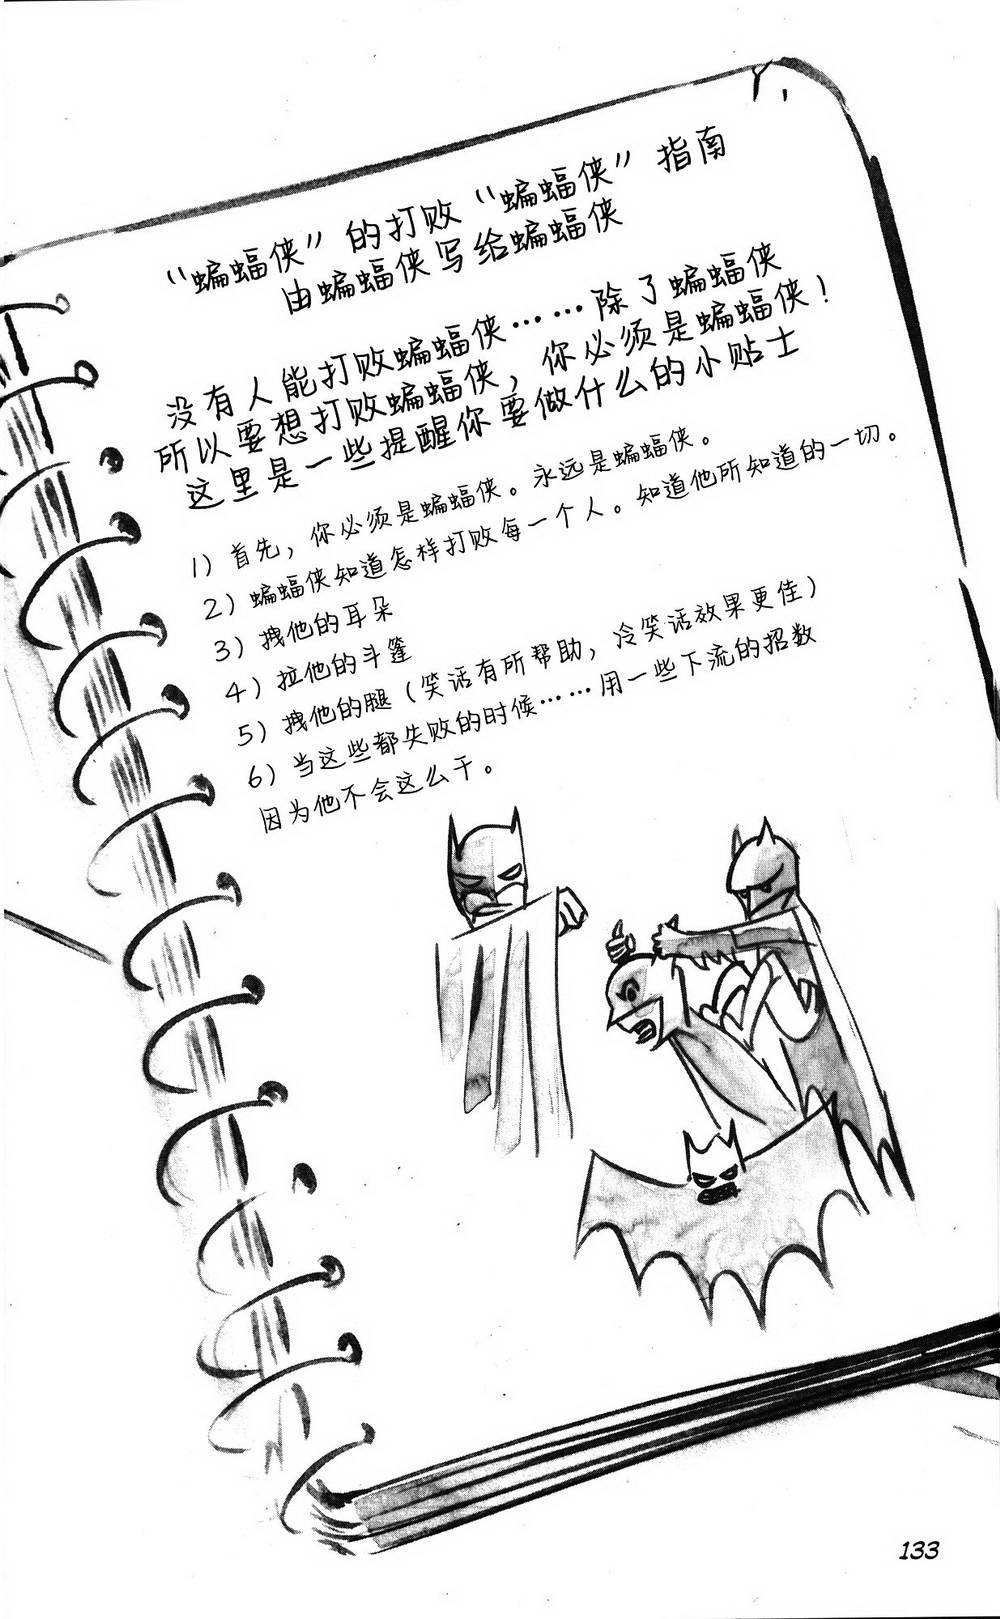 “蝙蝠侠”的打败“蝙蝠侠”指南
由蝙蝠侠写给蝙蝠侠
没有人能打败蝙蝠侠……除了蝙蝠侠
所以要想打败蝙蝠侠，你必须是蝙蝠侠！
这里是一些提醒你要做什么的小贴士
1）首先，你必须是蝙蝠侠。永远是蝙蝠侠。
2）蝙蝠侠知道怎样打败每一个人。知道他所知道的一切。
3）拽他的耳朵
4）拉他的斗篷
5）拽他的腿（笑话有所帮助，冷笑话效果更佳）
6）当这些都失败的时候……用一些下流的招数
因为他不会这么干。
133